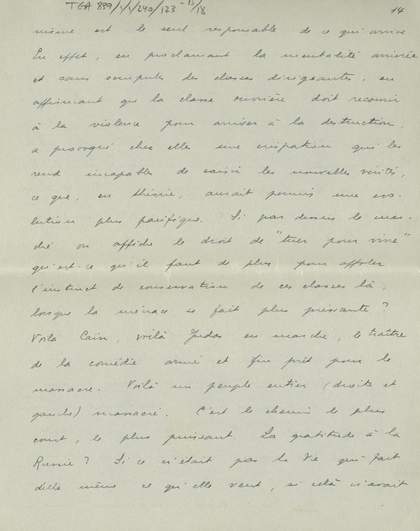 TGA 859/1/1/240/133 - 15/18
14
même est le seul responsable de ce qui arrive
En effet, en proclamant la mentalité arriérée
et sans scrupules des classes dirigeantes, en
affirmant que la classe ouvrière doit recourir
à la violence pour arriver à la destruction,
a provoqué chez elles une crispation qui les
rend incapables de saisir les nouvelles vérités,
ce que, en théorie, aurait permis une évo-
lution plus pacifique. Si par dessus le mar-
ché on affiche le droit de "tuer pour vivre"
qu'est-ce qu'il faut de plus pour affoler
l'instinct de conservation de ces classes là,
lorsque la menace se fait plus pressante?
Voilà Cain, voilà Judas en marche, le traître
de la comédie armé et fin prêt pour le
massacre. Voilà un peuple entier (droite et
gauche) massacré. C'est le chemin le plus
court, le plus puissant. La gratitude à la
Russie? Si ce n'était pas la Vie qui fait
d'elle même ce qu'elle veut, si cela n'avait